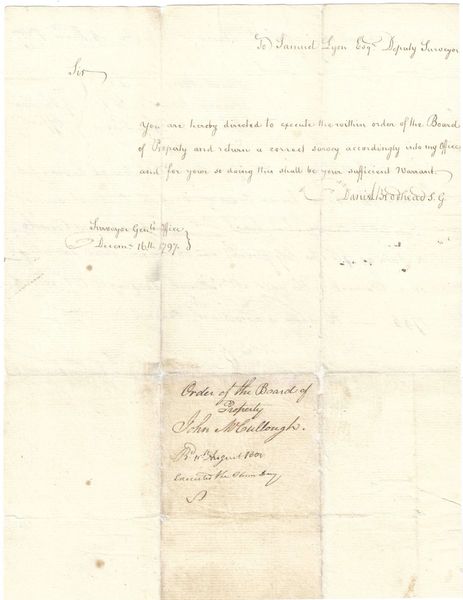 To Samuel Lyon Esqr. Deputy Surveyor
Sir
You are hereby directed to execute the within order of the Board
of Property and return a correct survey accordingly into my Office
and for your so doing this shall be your sufficient Warrant.
Daniel Brodhead S. G
Surveyor Genls. Office
Decemr. 16th. 1797.
Order of the Board of
Property
John McCullough.
August
Executed the Same Day